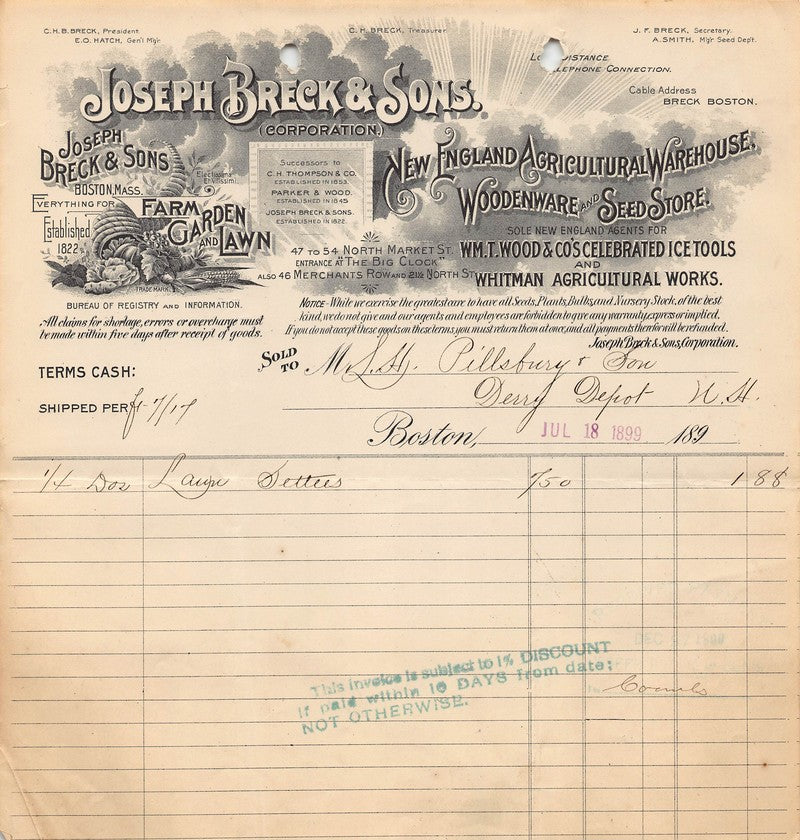 C.H.B. BRECK, President.
E.O. HATCH, Gen'l M'g'r.
C.H. BRECK, Treasurer.
J. F. BRECK, Secretary.
A. SMITH, M'g'r Seed Dep't.
DISTANCE
TELEPHONE CONNECTION.
Cable Address
BRECK BOSTON.
JOSEPH BRECK & SONS.
(CORPORATION.)
JOSEPH
BRECK & SONS
BOSTON, MASS.
EVERYTHING FOR
FARM
GARDEN
AND LAWN
Established
1822
TRADE MARK
Successors to
C.H. THOMPSON & CO.
ESTABLISHED IN 1853.
PARKER & WOOD.
ESTABLISHED IN 1845
JOSEPH BRECK & SONS.
ESTABLISHED IN 1822.
NEW ENGLAND AGRICULTURAL WAREHOUSE,
WOODENWARE AND SEED STORE.
SOLE NEW ENGLAND AGENTS FOR
WM.T. WOOD & CO'S CELEBRATED ICE TOOLS
AND
WHITMAN AGRICULTURAL WORKS.
47 TO 54 NORTH MARKET ST.
ENTRANCE AT "THE BIG CLOCK"
ALSO 46 MERCHANTS ROW AND 21½ NORTH ST.
BUREAU OF REGISTRY AND INFORMATION.
All claims for shortage, errors or overcharge must
be made within five days after receipt of goods.
NOTICE- While we exercise the greatest care to have all Seeds, Plants, Bulbs, and Nursery Stock, of the best
kind, we do not give and our agents and employees are forbidden to give any warranty, express or implied.
If you do not accept these goods on these terms, you must return them at once, and all payments therefor will be refunded.
Joseph Breck & Sons, Corporation.
SOLD TO M L.H. Pillsbury & Son
Derry Depot N.H.
TERMS CASH:
SHIPPED PER 7/17
Boston, JUL 18 1899 189
1/4 Doz Lawn Settees 7/50 1 88
This invoice is subject to 1% DISCOUNT
if paid within 10 DAYS from date;
NOT OTHERWISE.